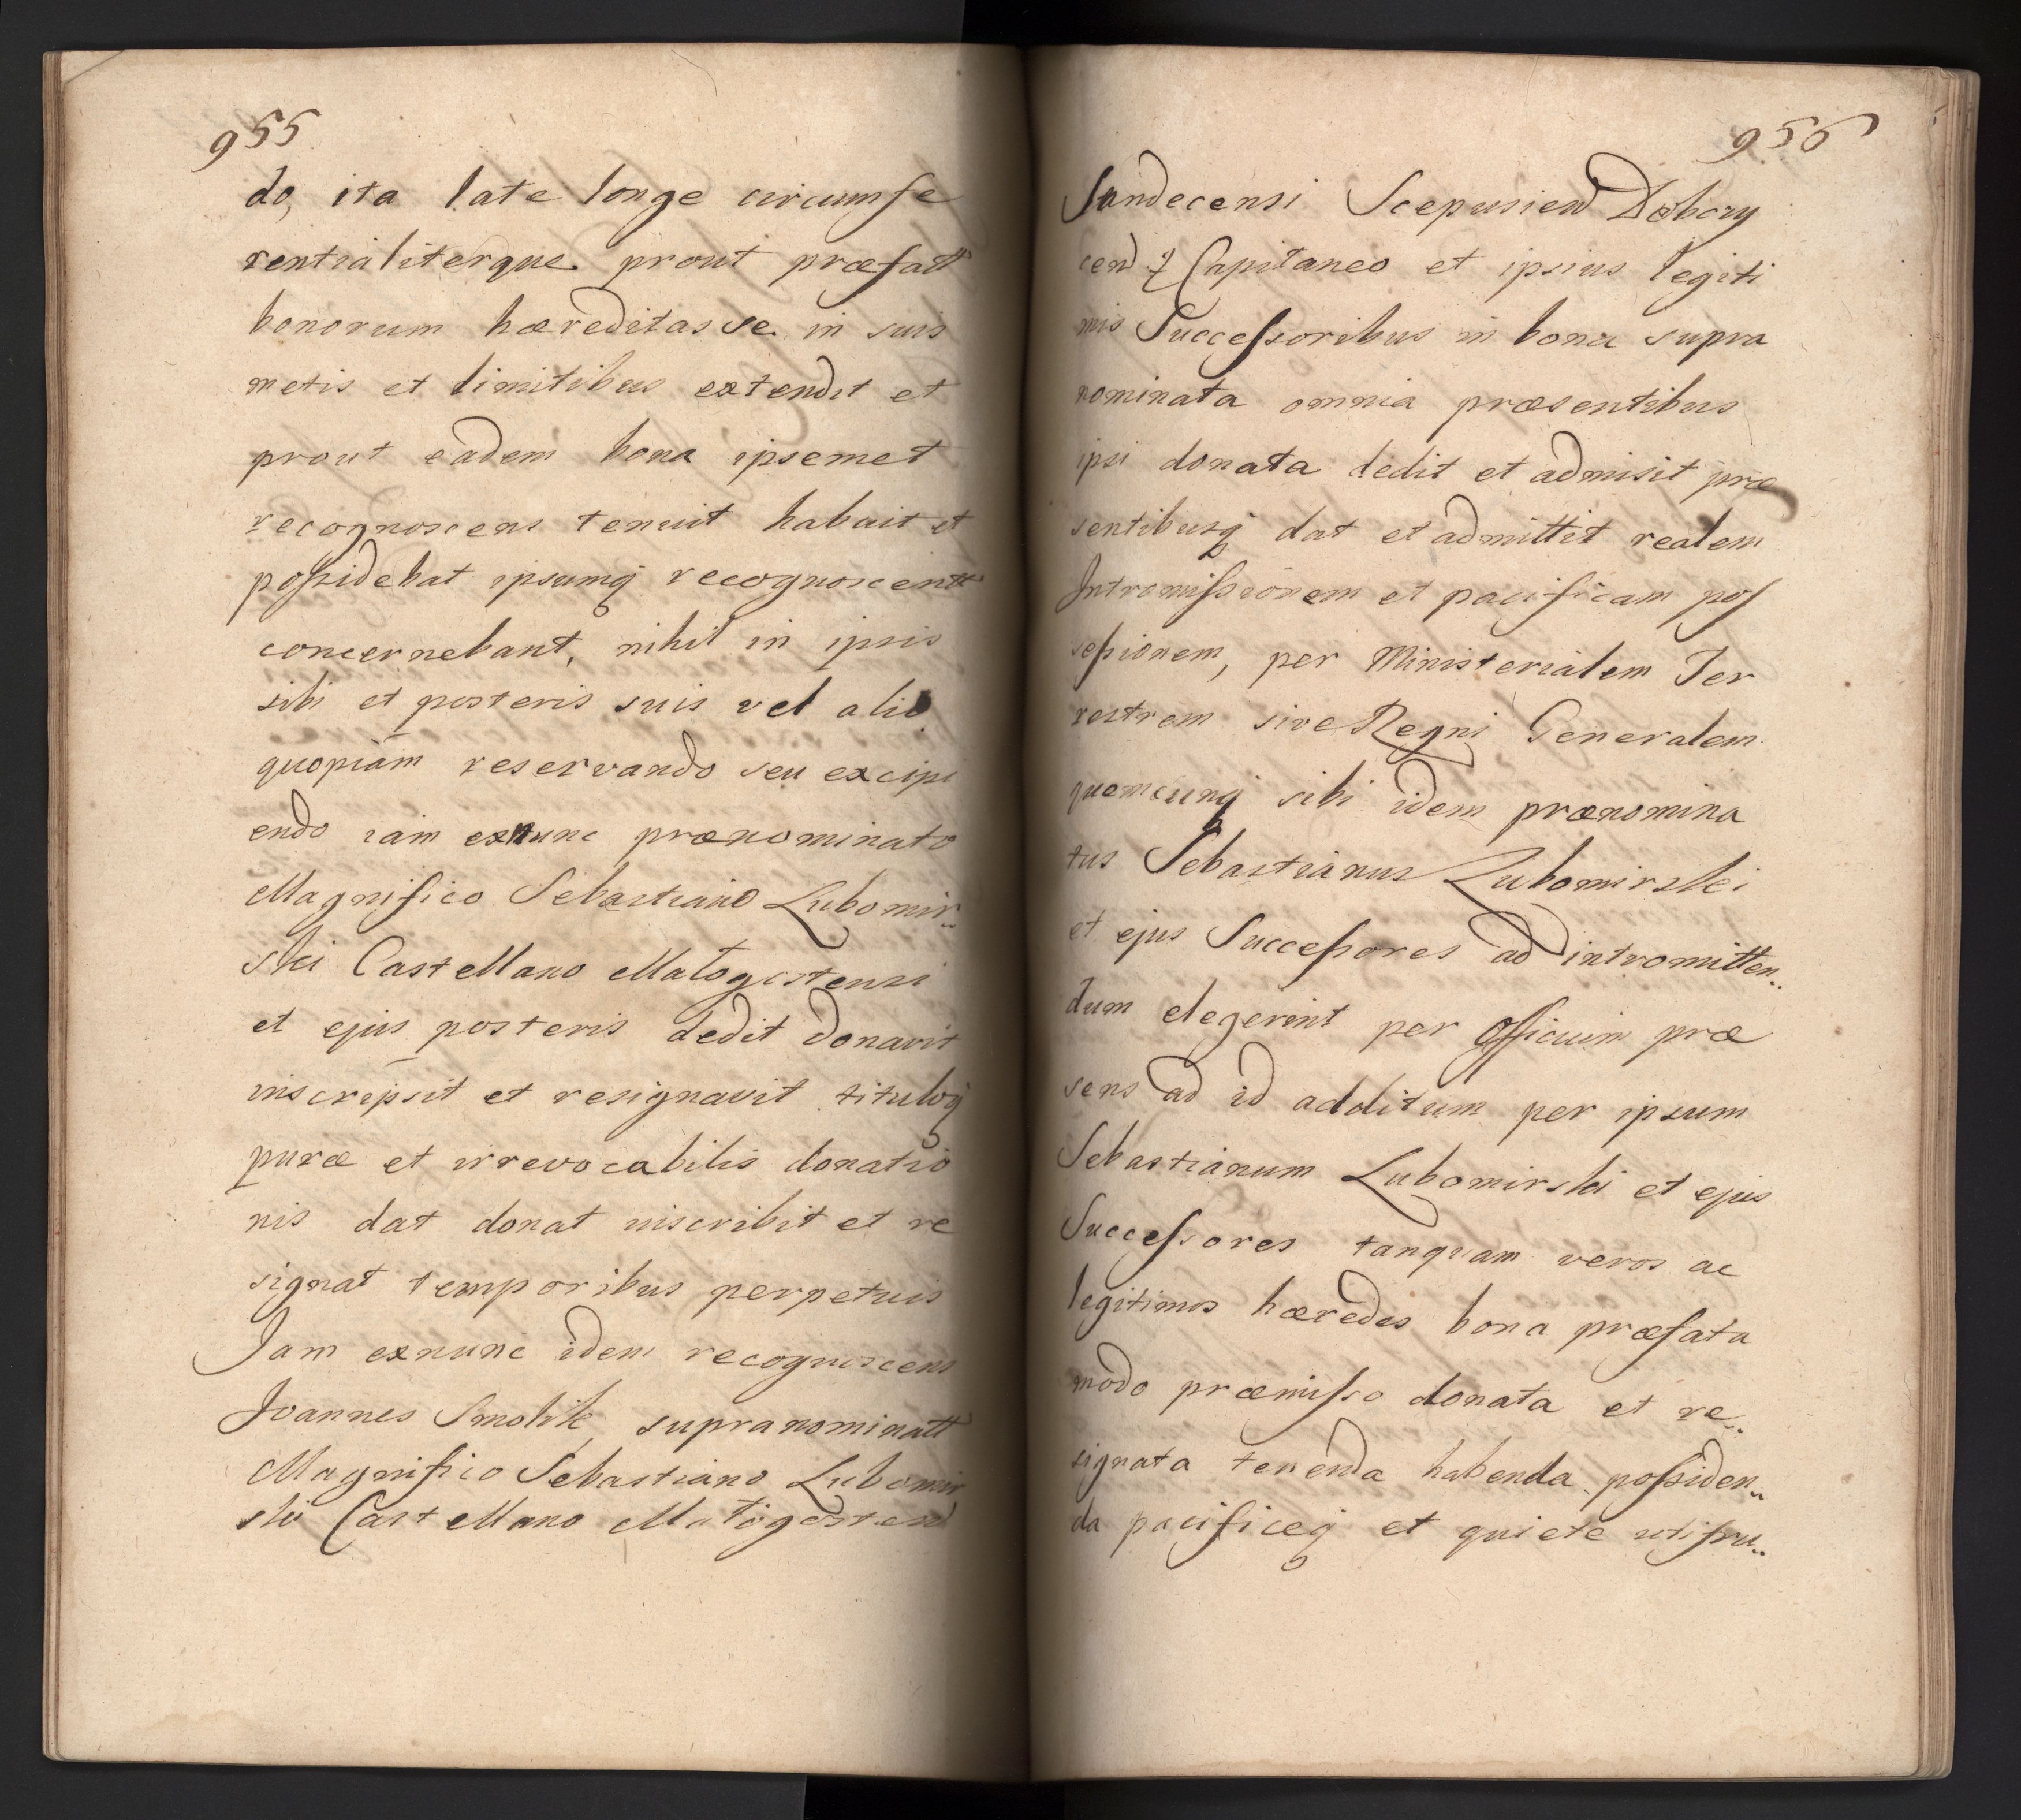 955
do, ita late longe circumfe
rentialiterque prout præfatt
bonorum hæreditas se in suis
metis et limitibus extendit et
prout eadem bona ipsemet
recognoscens tenuit habuit et
possidebat ipsumq recognoscentt
concernebant, nihil in ipsis
sibi et posteris suis vel alio
quopiam reservando seu excipi
endo iam exnunc prænominato
Magnifico Sebastiano Lubomir„
ski Castellano Malogostensi
et ejus posteris dedit donavit
inscripsit et resignavit tituloq
puræ et irrevocabilis donatio
nis dat donat inscribit et re
signat temporibus perpetuis
Jam exnunc idem recognoscens
Joannes Smolik supranominatt
Magnifico Sebastiano Lubomir
ski Castellano Malogosten
956
Sandecensi Scepusien Dobczy
cen Capitaneo et ipsius legiti
mis Successoribus in bona supra
nominata omnia præsentibus
ipsi donata dedit et admisit præ
sentibusq dat et admittit realem
Intromissionem et pacificam pos
sessionem, per Ministerialem Ter
restrem sive Regni Generalem
quemcunq sibi idem prænomina
tus Sebastianus Lubomirski
et ejus Successores ad intromitten„
dum elegerint per Officium præ
sens ad id additum per ipsum
Sebastianum Lubomirski et ejus
Successores tanquam veros ac
legitimos hæredes bona præfata
modo præmisso donata et re„
signata tenenda habenda possiden„
da pacificeq et quiete utifru„